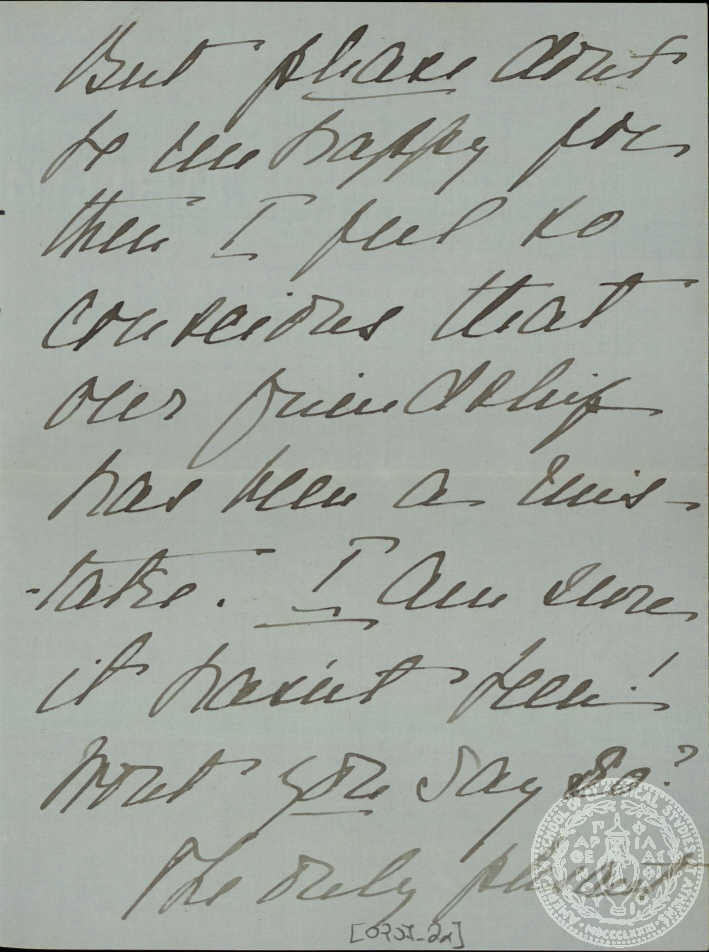 But please dont
be unhappy for
then I feel so
conscious that
our friendship
has been a mis-
-take. I am sure
it hasn't been!
Wont you say so?
The only
[0757-2a]